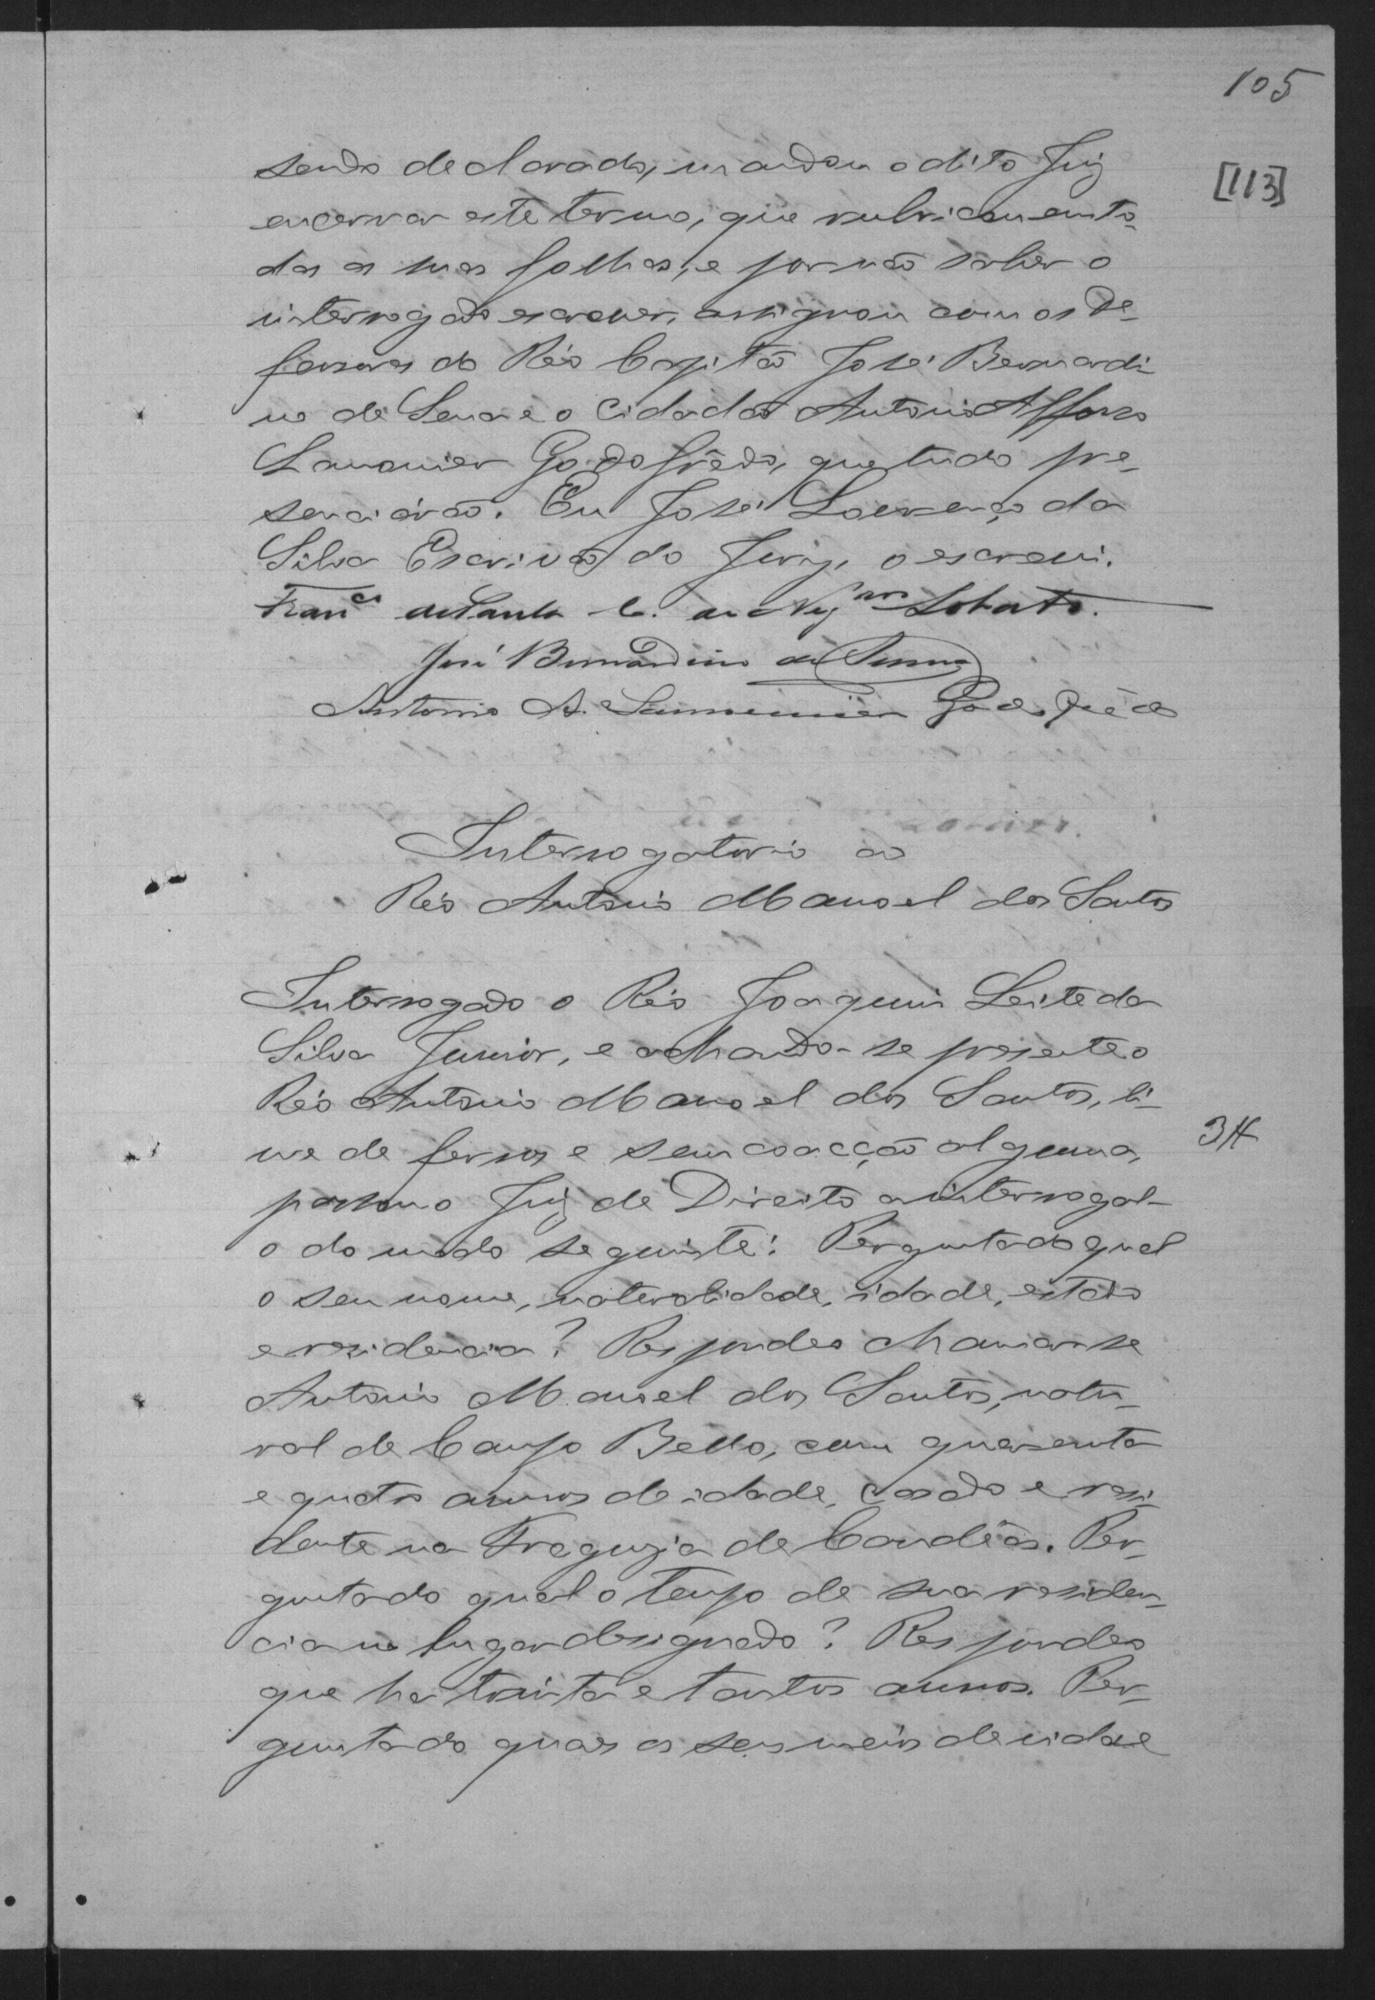 105
[113]
sendo declarado, mandou o dito Juiz
encerrar este termo, que rubricou em to-
das as suas folhas, e por não saber o
interrogado escrever, assignou com os De-
fensores do Réo Capitão José Bernardi-
no de Sena e o Cidadão Antonio Affonso
Lamounier Godofrêdo, que tudo pre-
senciárão. Eu José Lourenço da
Silva Escrivão do Jury, o escrevi.
Franco de Paula C. de Lobato.
José Bernardino de Senna
Antonio A. Lamounier Godofrêdo
Interrogatorio ao
Réo Antonio Manoel dos Santos
Interrogado o Réo Joaquim Leite da
Silva Junior, e achando-se presente o
Réo Antonio Manoel dos Santos, li-
vre de ferros e sem coacção alguma,
passou o Juiz de Direito a interrogal-
o do modo seguinte: Perguntado qual
o seu nome, naturalidade, idade, estado
e residencia? Respondeo chamar-se
Antonio Manoel dos Santos, natu-
ral de Campo Bello, com quarenta
e quatro annos de idade, casado e resi-
dente na Freguezia de Candêas. Per-
guntado qual o tempo de sua residen-
cia no lugar designado? Respondeo
que ha trinta e tantos annos. Per-
guntado quaes os seus meios de vida e